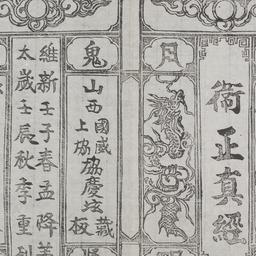 衛正真經
鬼
山西國威上協協慶玹藏板
維新壬子春孟降
太歲壬辰秋季重